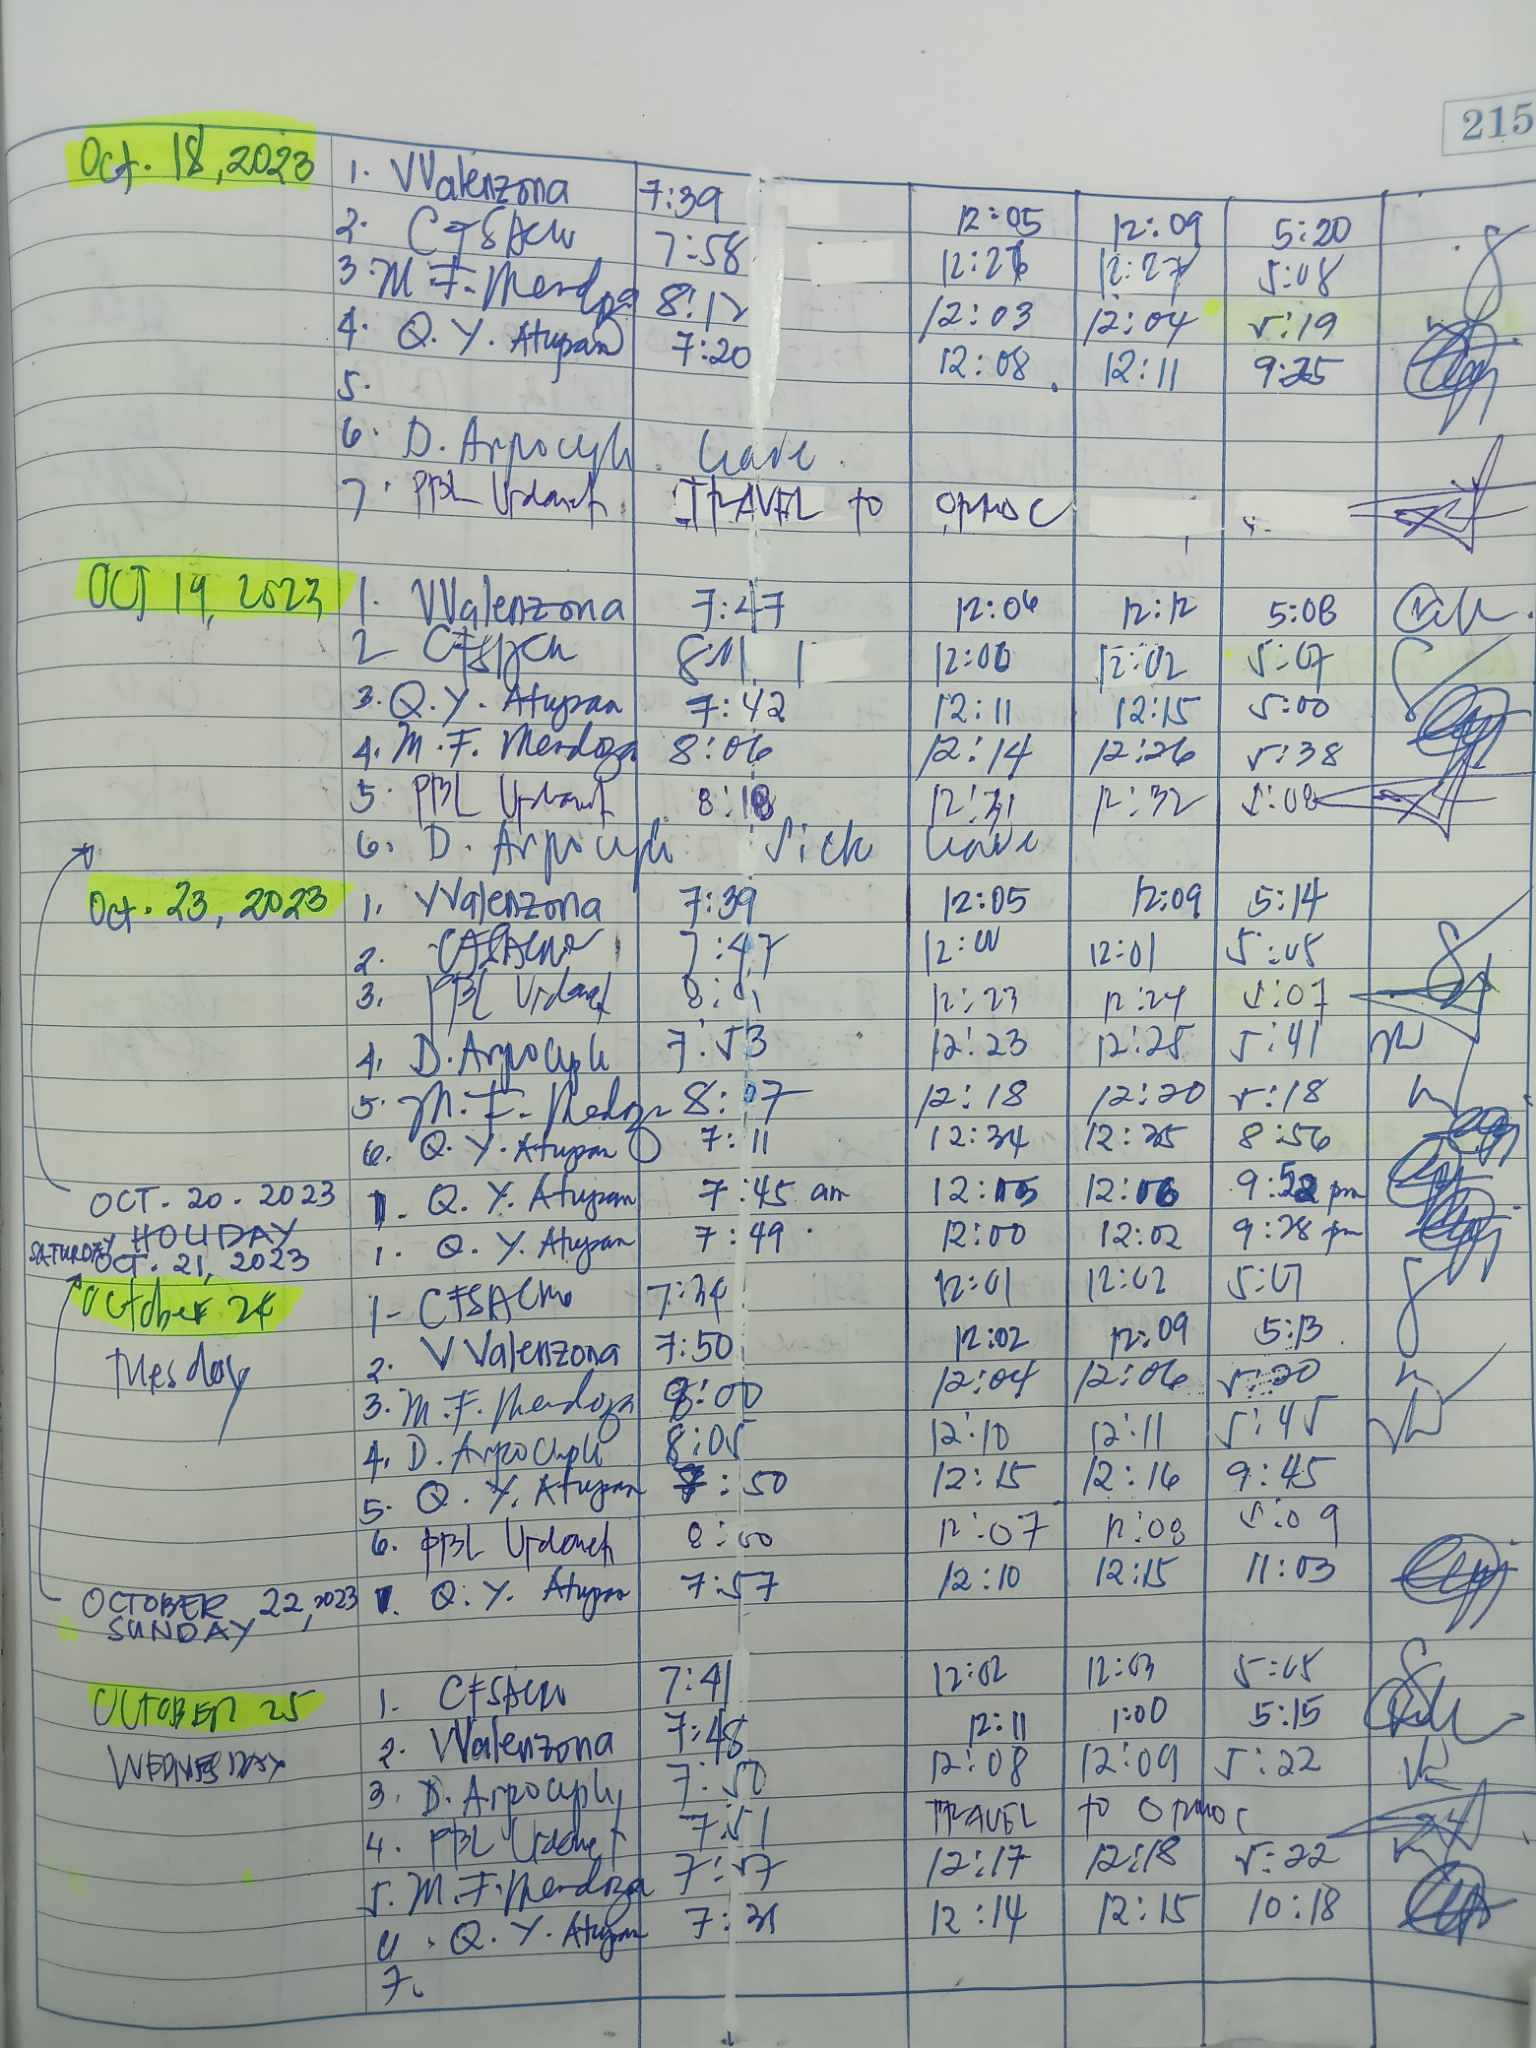 215
Oct. 18, 2023 1. VValenzona 7:39 12:05 12:09 5:20
2. 7:58 12:26 12:27 5:08
3. M. F. Mendoza 8:12 12:03 12:04 5:19
4. Q. Y. Atupan 7:20 12:08 12:11 9:25
5.
6. D. Leave
7. PBL TRAVEL to ORMOC
OCT 19, 2023 1. VValenzona 7:47 12:06 12:12 5:08
2 12:00 12:02 5:07
3. Q. Y. Atupan 7:42 12:11 12:15 5:00
4. M. F. Mendoza 8:06 12:14 12:26 5:38
5. PBL 8:18 12:31 12:32 5:08
6. D. Sick Leave
Oct. 23, 2023 1. VValenzona 7:39 12:05 12:09 5:14
2. 7:47 12:00 12:01 5:05
3. PBL 12:23 12:24 5:07
4. D. 7:53 12:23 12:25 5:41
5. M. F. Mendoza 8:07 12:18 12:20 5:18
6. Q. Y. Atupan 7:11 12:34 12:35 8:56
OCT. 20. 2023 1. Q. Y. Atupan 7:45 am 12:05 12:06 9:52 pm
HOLIDAY
SATURDAY OCT. 21, 2023 1. Q. Y. Atupan 7:49 12:00 12:02 9:28 pm
October 24 1- 7:34 12:01 12:02 5:07
Tuesday 2. VValenzona 7:50 12:02 12:09 5:13
3. M. F. Mendoza 8:00 12:04 12:06 5:20
4. D. 8:05 12:10 12:11 5:45
5. Q. Y. Atupan 7:50 12:15 12:16 9:45
6. PBL 8:00 12:07 12:08 5:09
OCTOBER 22, 2023 1. Q. Y. Atupan 7:57 12:10 12:15 11:03
SUNDAY
OCTOBER 25 1. 7:41 12:02 12:03 5:05
WEDNESDAY 2. VValenzona 7:48 12:11 1:00 5:15
3. D. 7:50 12:08 12:09 5:22
4. PBL 7:51 TRAVEL to ORMOC
5. M. F. Mendoza 7:57 12:17 12:18 5:22
6. Q. Y. Atupan 7:31 12:14 12:15 10:18
7.